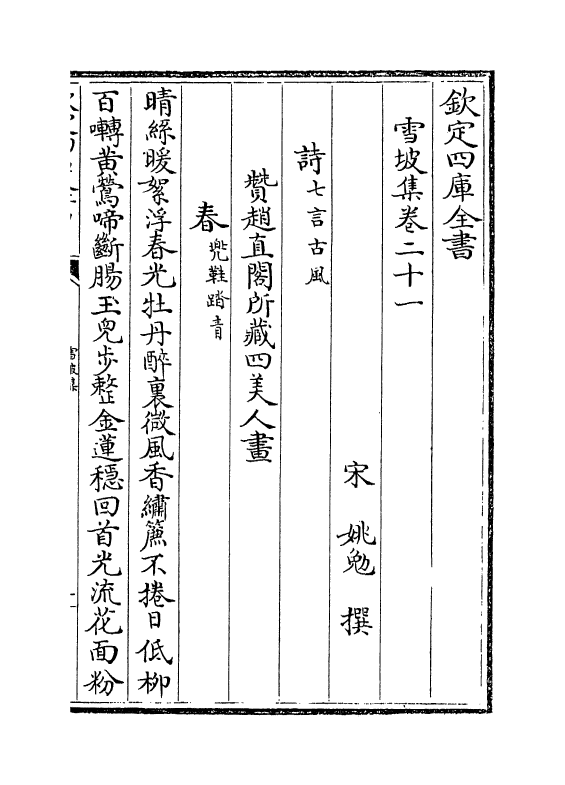 欽定四庫全書
雪坡集卷二十一
宋　姚勉　撰
詩七言古風
贊趙直閣所藏四美人畫
春兠鞋踏青
晴絲暖絮浮春光牡丹醉裏微風香繡簾不捲日低柳
百囀黃鶯啼斷腸玉兒步整金蓮穩回首光流花面粉
雪坡集